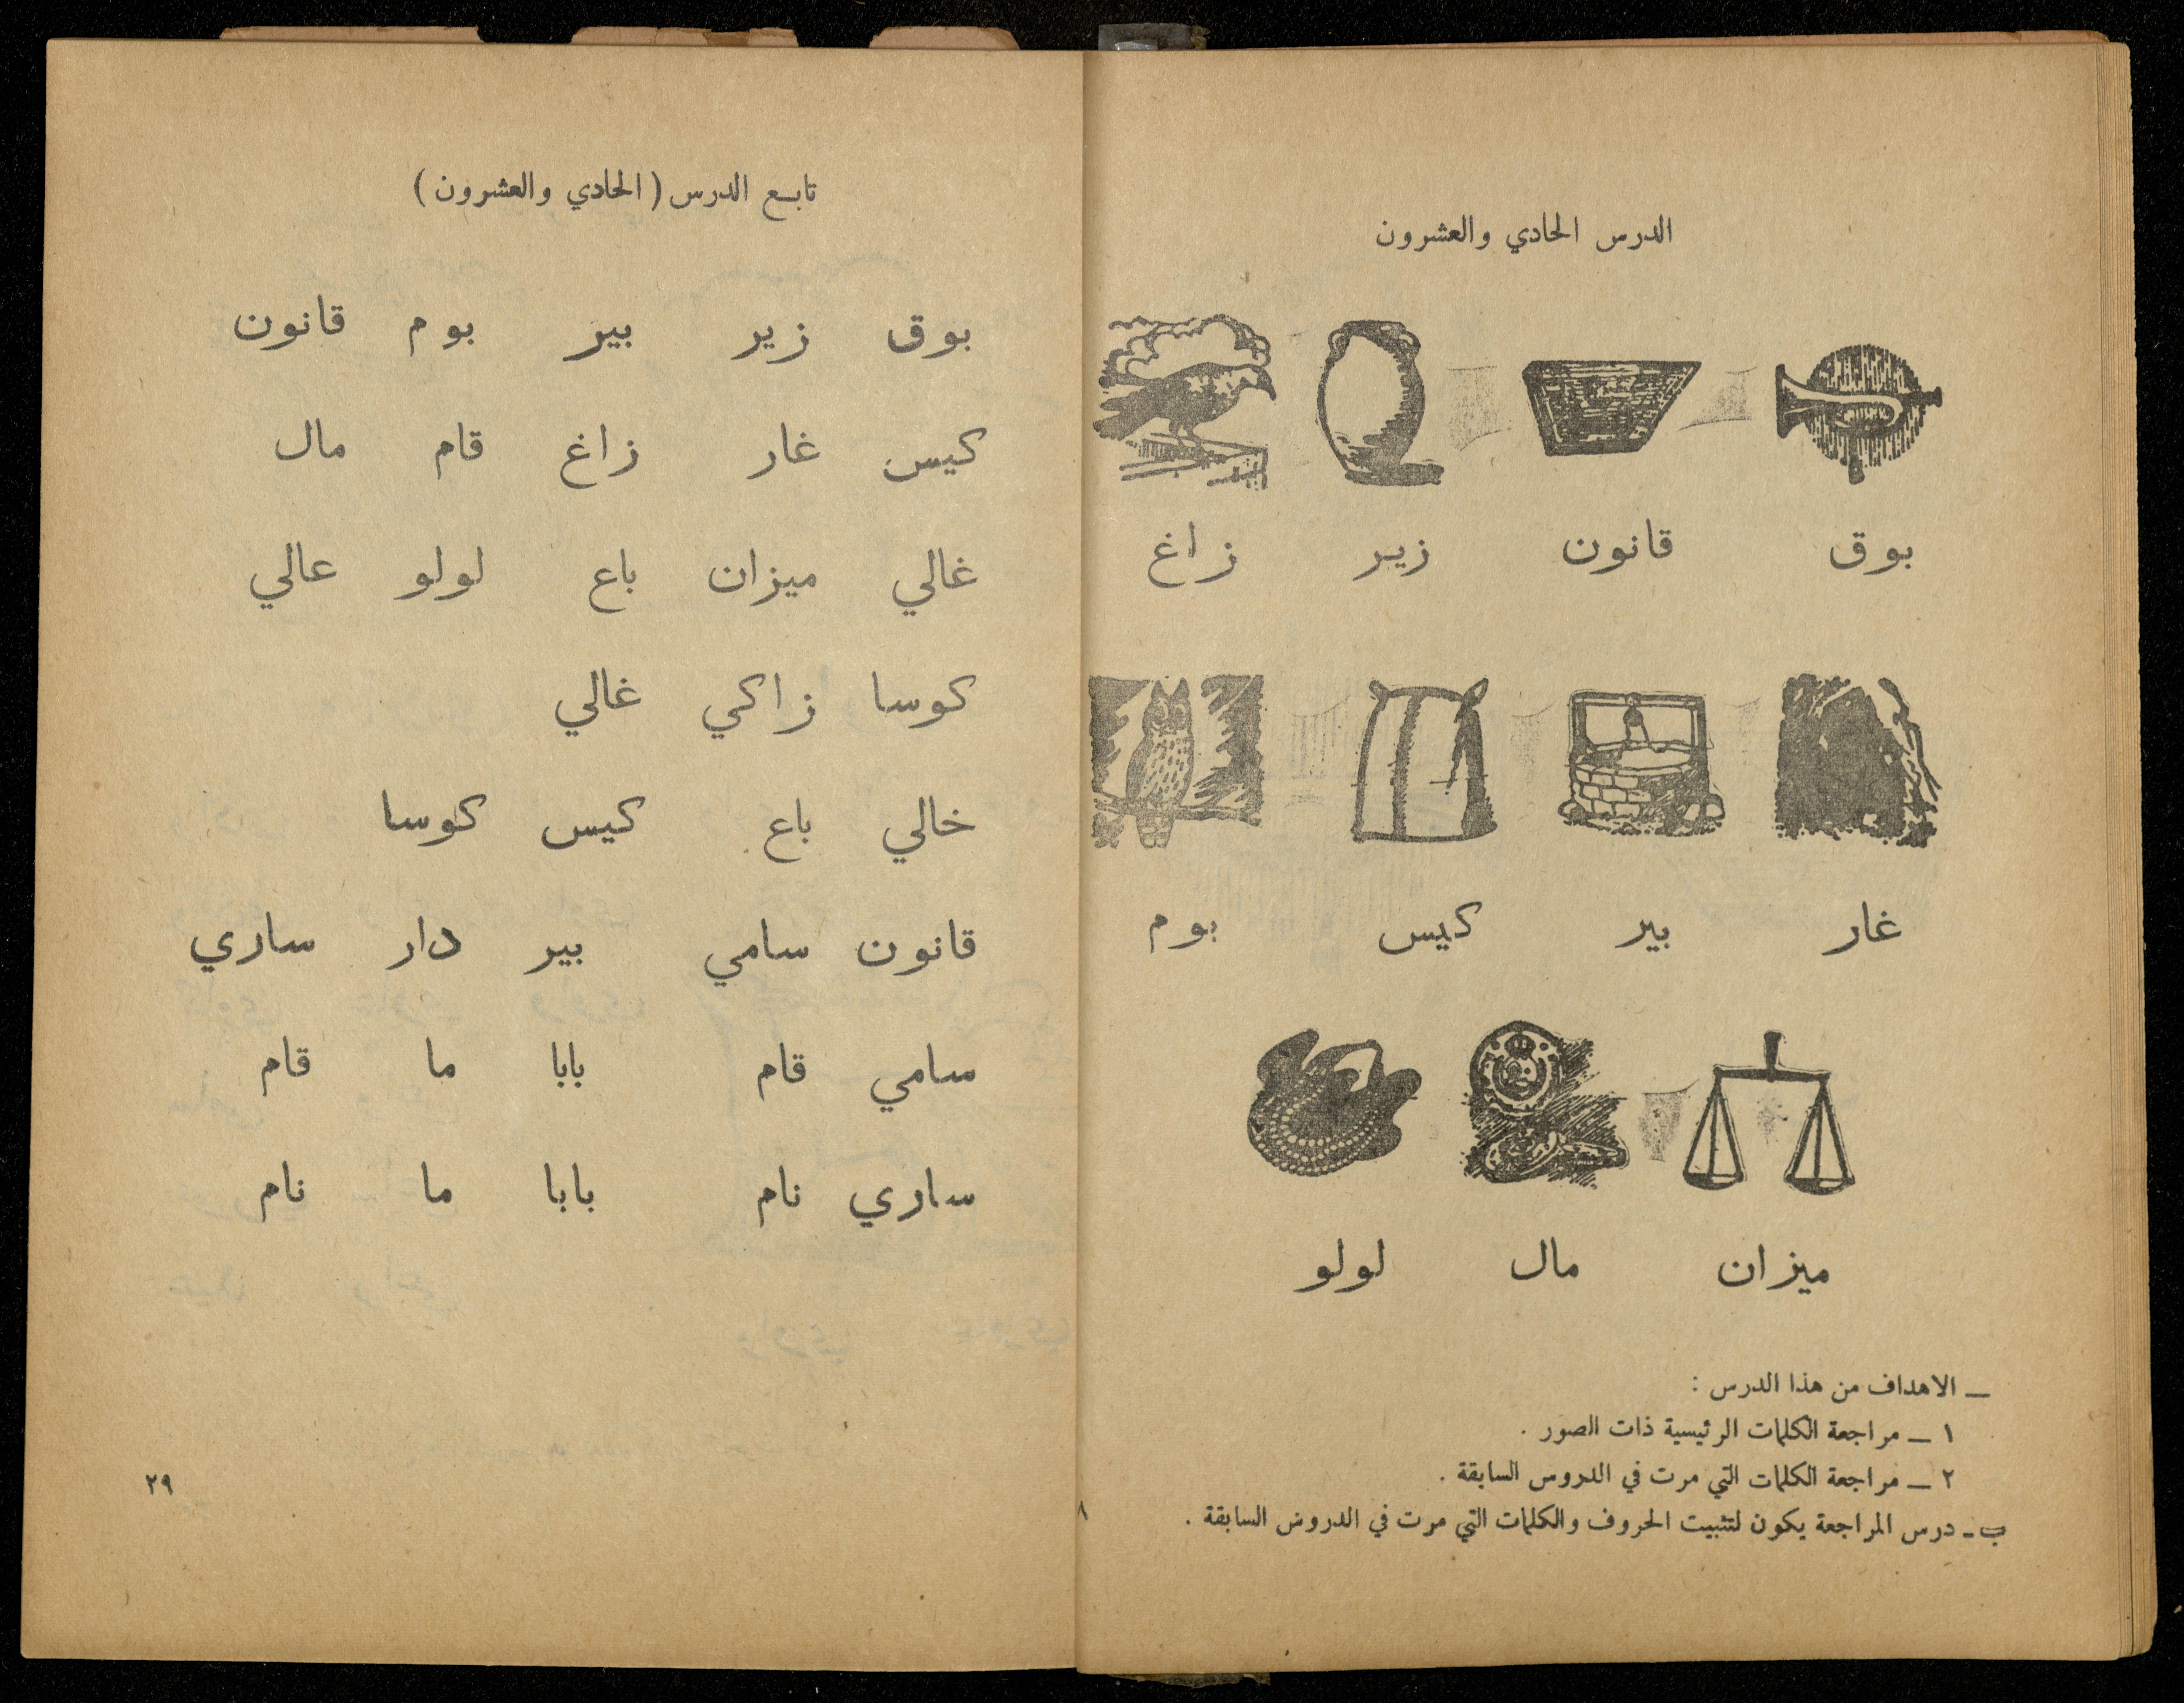 الدرس الحادي والعشرون
بوق قانون زير زاغ
غار بير كيس بوم
ميزان مال لولو
ــ الاهداف من هذا الدرس :
١ ــ مراجعة الكلمات الرئيسية ذات الصور .
٢ ــ مراجعة الكلمات التي مرت في الدروس السابقة .
ب ـ درس المراجعة يكون لتثبيت الحروف والكلمات التي مرت في الدروس السابقة .
٨
تابع الدرس ( الحادي والعشرون )
بوق زير بير بوم قانون
كيس غار زاغ قام مال
غالي ميزان باع لولو عالي
كوسا زاكي غالي
خالي باع كيس كوسا
قانون سامي بير دار ساري
سامي قام بابا ما قام
ساري نام بابا ما نام
٢٩